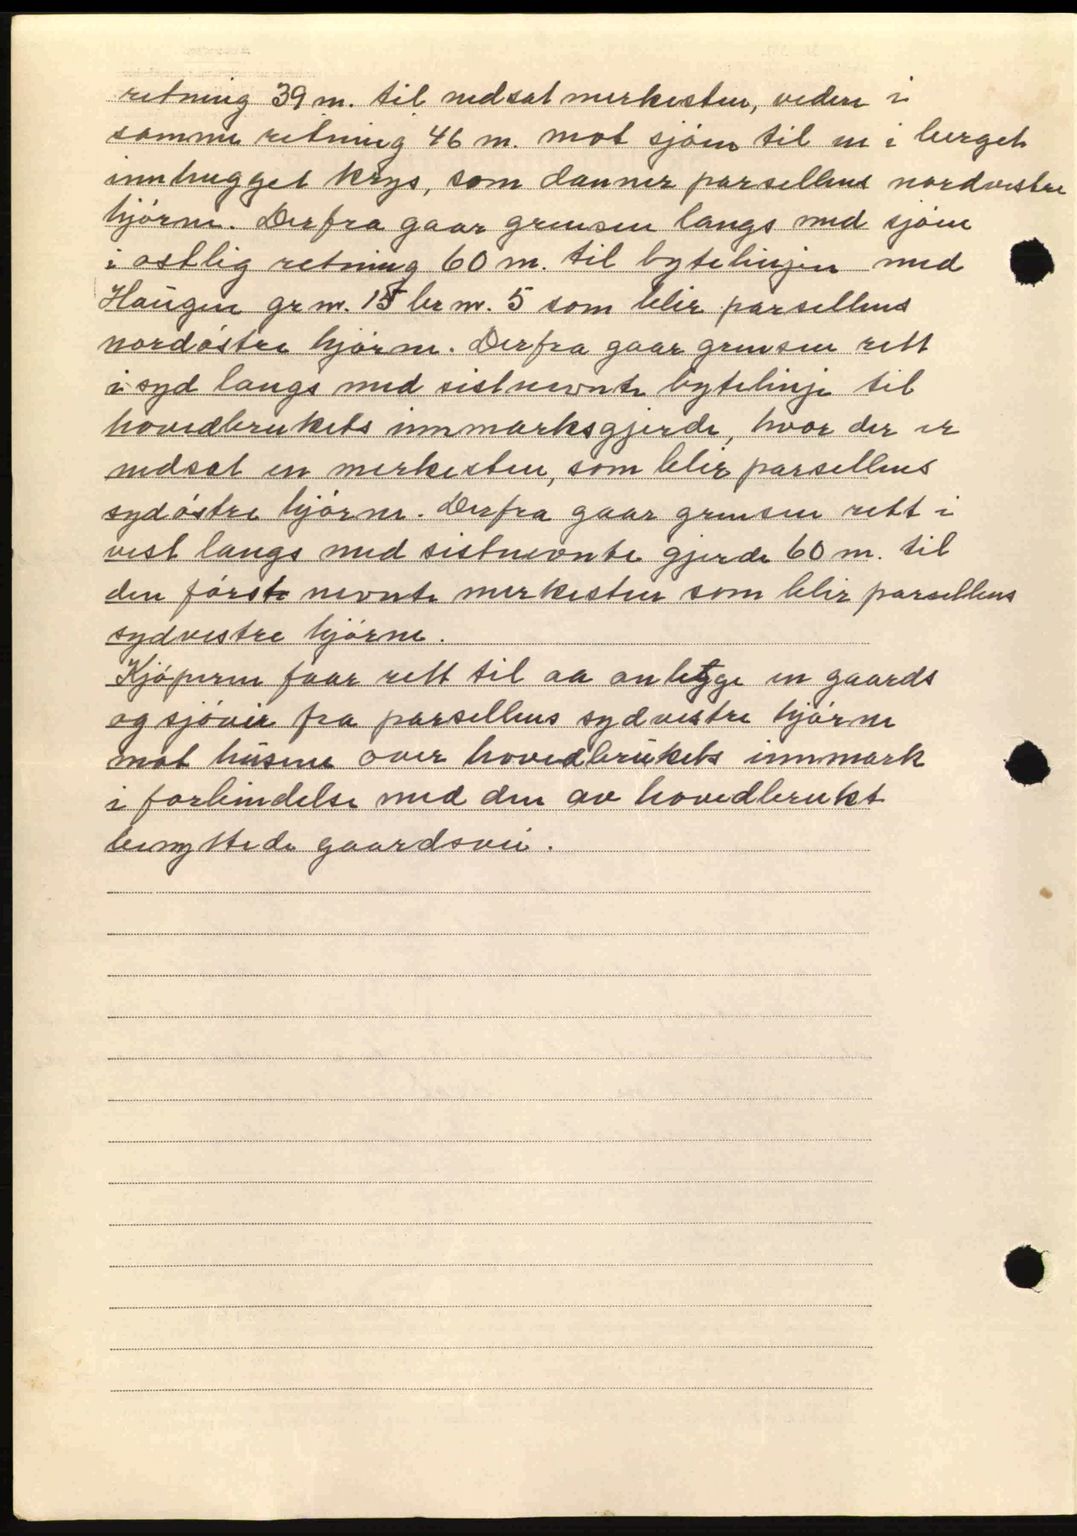 retning 39 m. til nedsat merkesten, videre i
samme retning 46 m. mot sjöen til en i berget
innhugget krys, som danner parsellens nordvestre
hjörne. Derfra gaar grensen langs med sjöen
i ostlig retning 60 m. til bytelinjen med
Haugen gr nr. 15 br nr. 5 som blir parsellens
nordöstre hjörne. Derfra gaar grensen rett
i syd langs med sistnevnte bytelinje til
hovedbrukets innmarksgjerde, hvor der er
nedsat en merkesten, som blir parsellens
sydöstre hjörne. Derfra gaar grensen rett i
vest langs med sistnevnte gjerde 60 m. til
den förste nevnte merkesten som blir parsellens
sydvestre hjörne.
Kjöperen faar rett til aa anlegge en gaards
og sjövei fra parsellens sydvestre hjörne
mot husene over hovedbrukets innmark
i forbindelse med den av hovedbruket
benyttede gaardsvei.